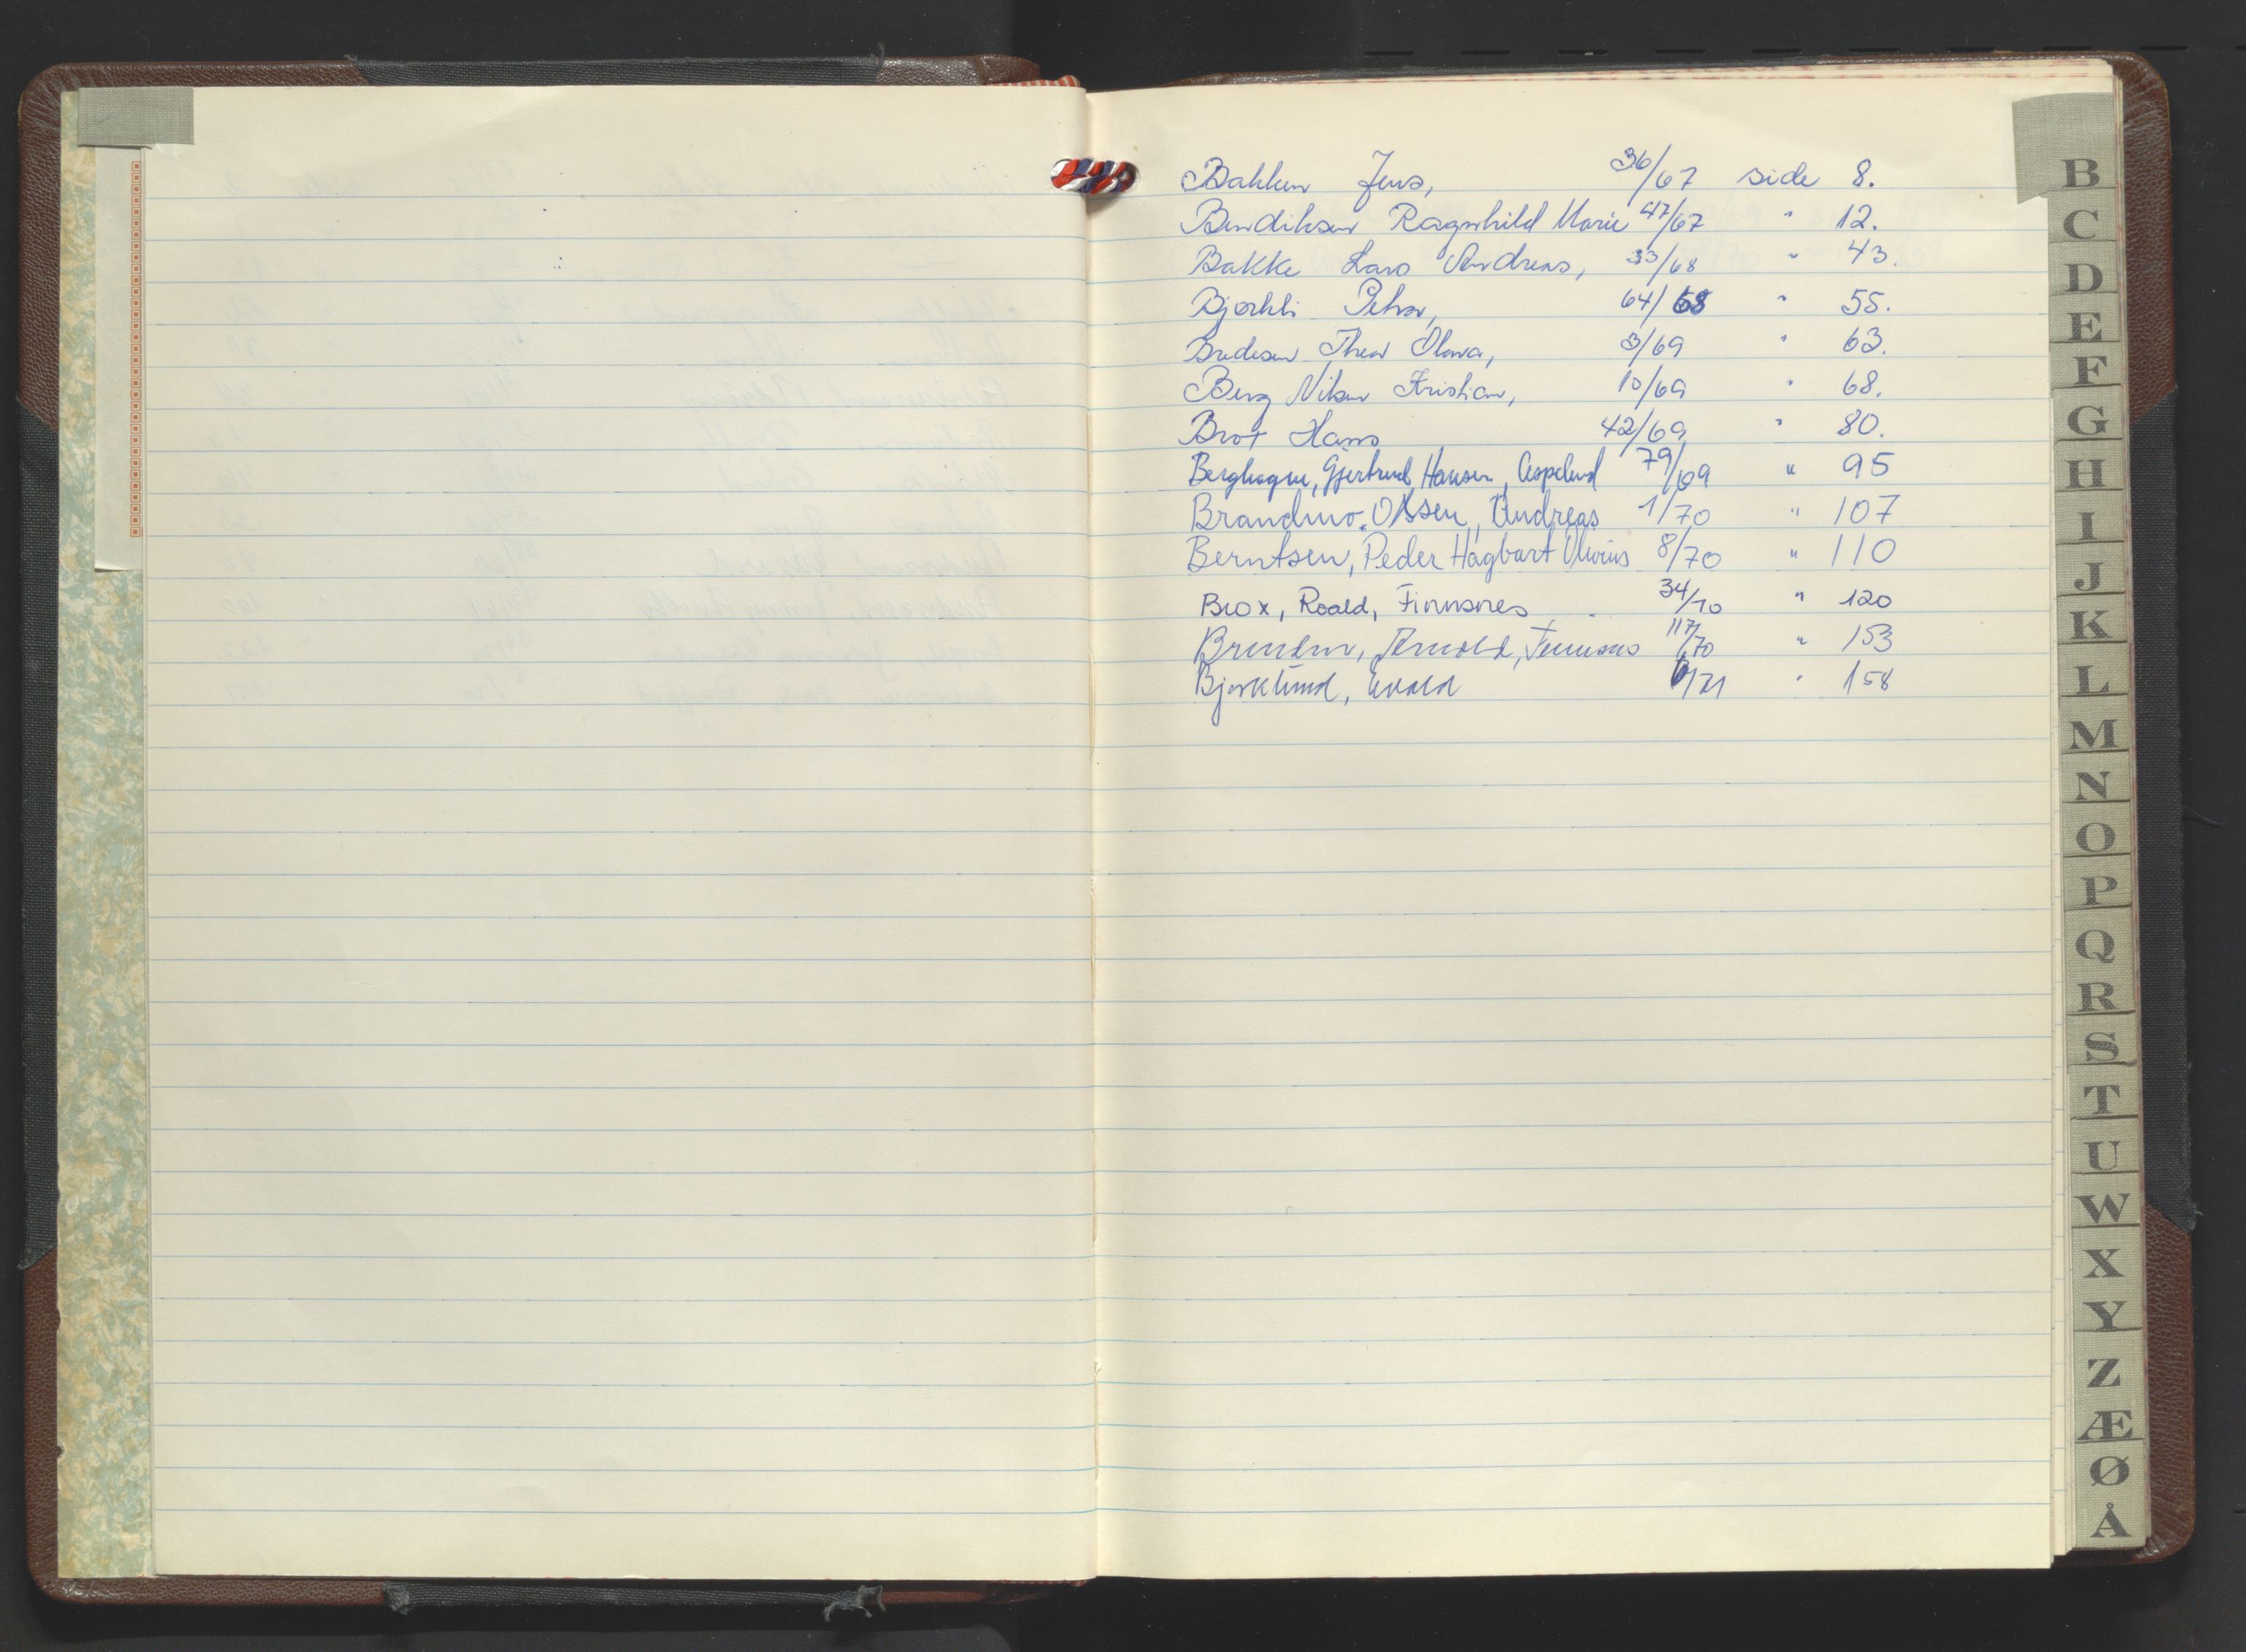 Bakken Jens, 36/67 side 8.
Bendiksen Ragnhild Marie 47/67 " 12.
Bakke Lars Andreas, 33/68 " 43.
Bjørkli Petra, 64/68 " 55.
Bredesen Thea Olava, 3/69 " 63.
Berg Nilsen Kristian, 10/69 " 68.
Brox Hans 42/69 " 80.
Berghagen, Gjertrud Hansen, Aspelund 79/69 " 95
Brandmo. Olsen, Andreas 1/70 " 107
Berntsen, Peder Hagbart Olivius 8/70 " 110
Brox, Roald, Finnsnes 34/70 " 120
Arnold, Finnsnes 117/70 " 153
Bjørklund, Evald /71 " 158
B
C
D
E
F
G
H
I
J
K
L
M
N
O
P
Q
R
S
T
U
W
X
Y
Z
Æ
Ø
Å